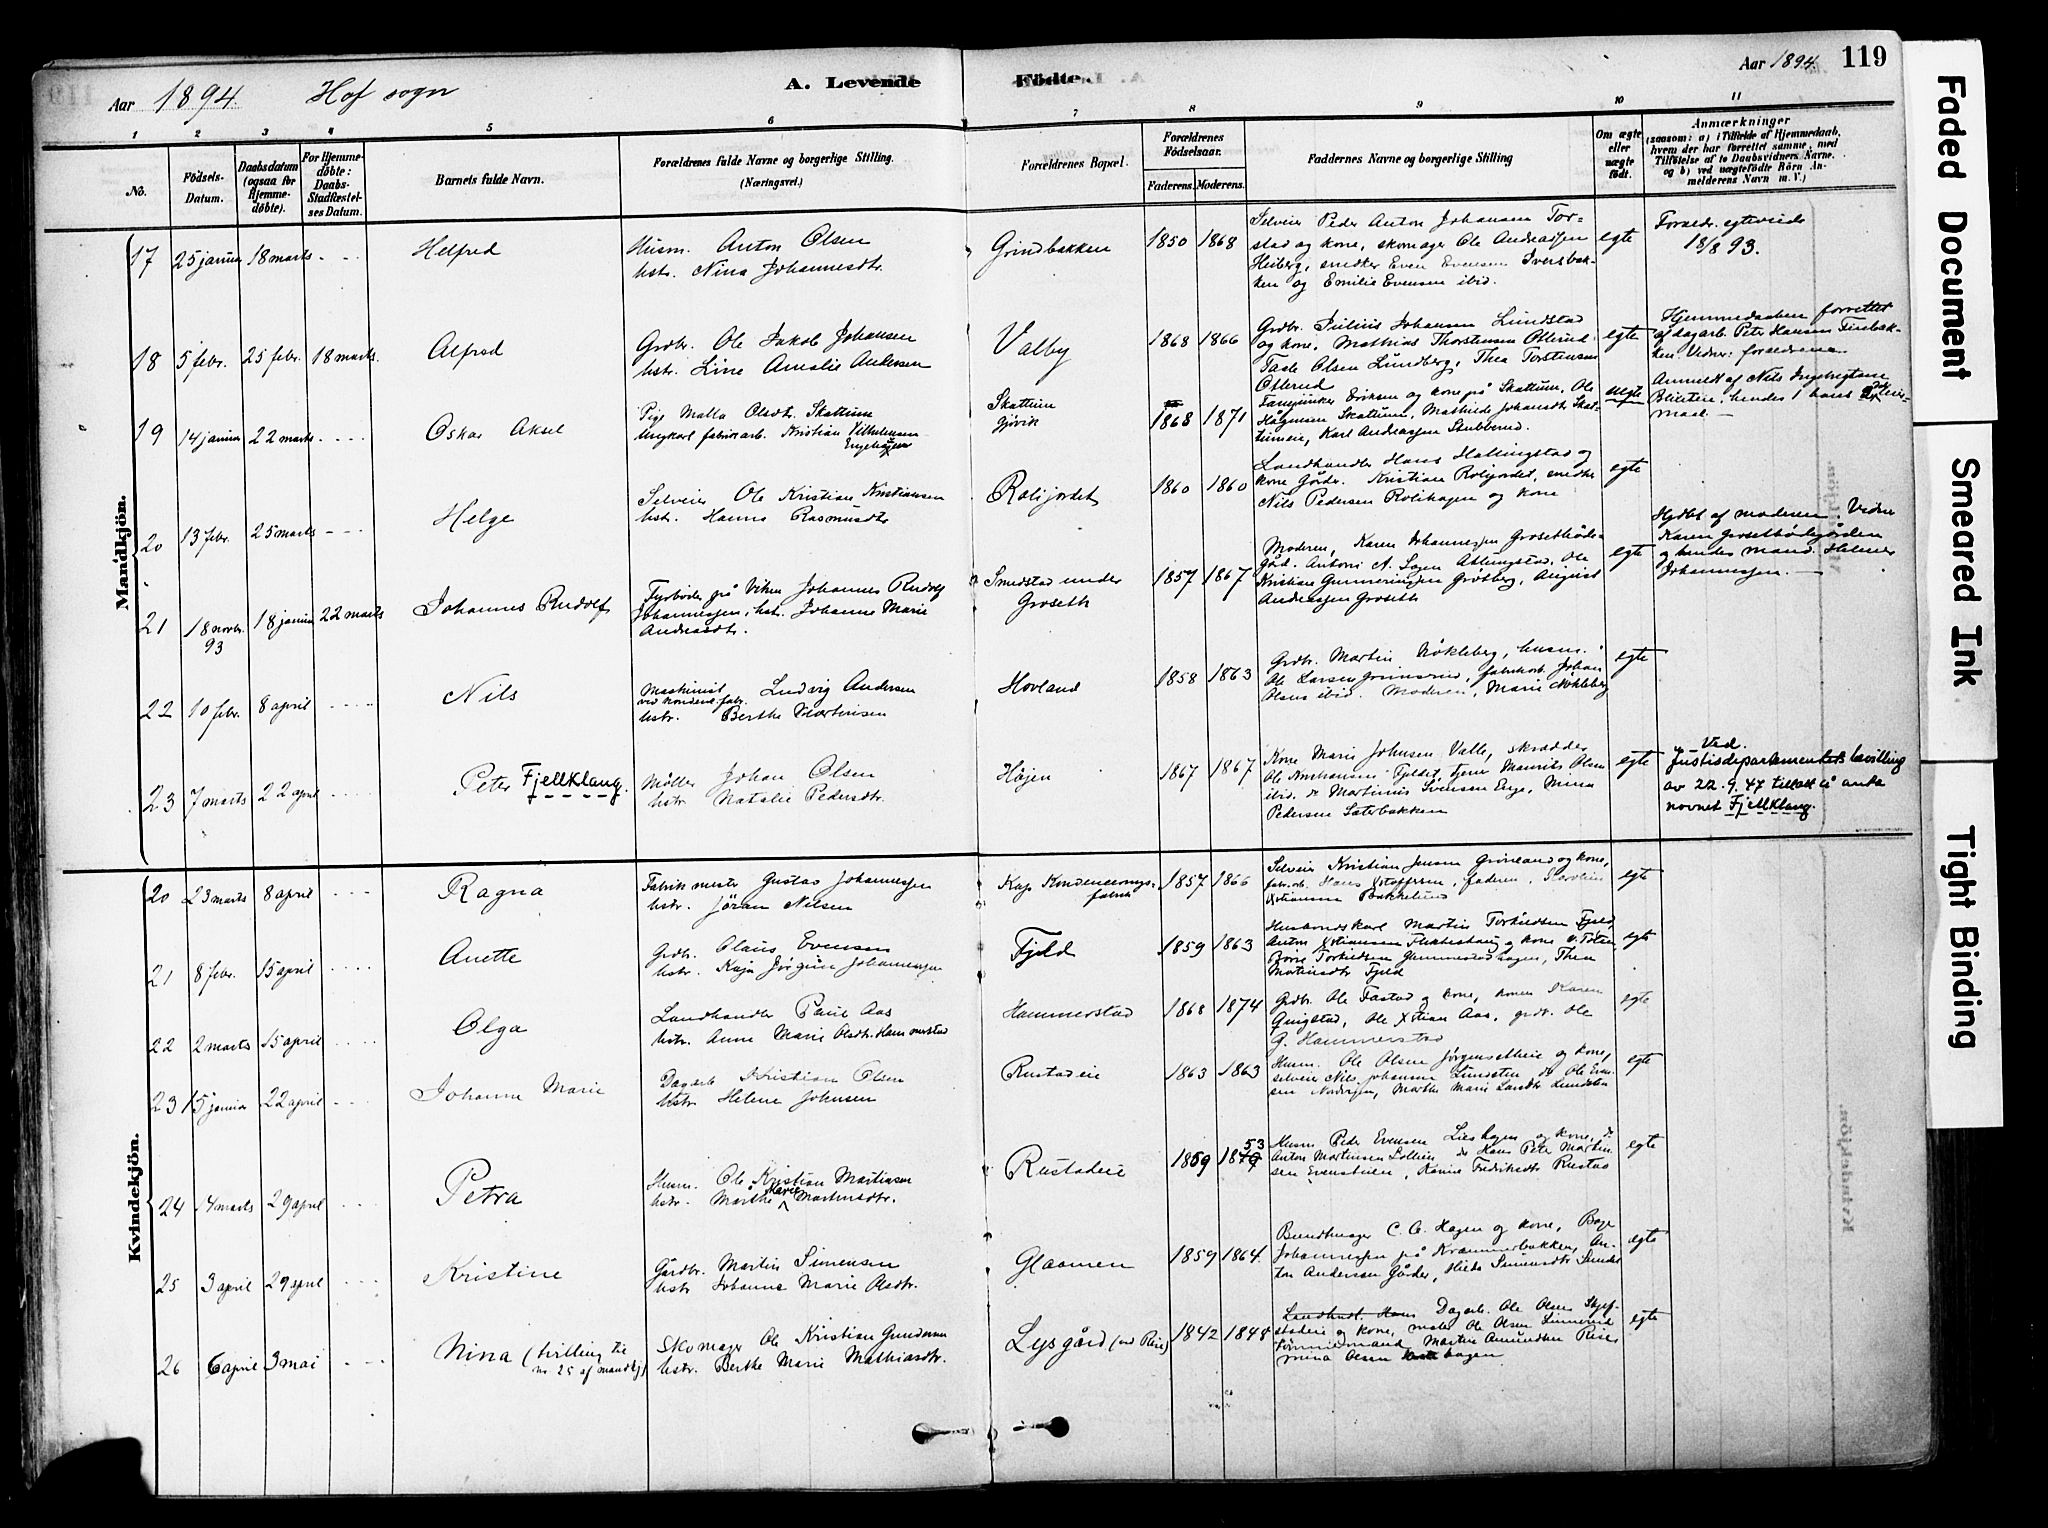 119
Aar 1894. Hof sogn
A. Levende Födte.
Aar 1894.
1 2 3 4 5 6 7 8 9 10 11
No.
Födsels-
Datum.
Daabsdatum
(ogsaa for
Hjemme-
döbte).
For Hjemme-
döbte:
Daabs-
Stadfæstel-
ses Datum.
Barnets fulde Navn.
Forældrenes fulde Navne og borgerlige Stilling.
(Næringsvei.)
Forældrenes Bopæl.
Forældrenes
Födselsaar.
Faderens. Moderens.
Faddernes Navne og borgerlige Stilling
Om ægte
eller
uægte
født.
Anmærkninger
(saasom: a) i Tilfælde af Hjemmedaab,
hvem der har forrettet samme, med
Tilföielse af to Daabsvidners Navne.
og b) ved uægtefödte Börn An-
melderens Navn m. V.)
Mandkjön.
17 25 januar 18 marts - - - Helfred
Husm. Anton Olsen
hstr. Nina Johannesdtr.
Grindbakken 1850 1868
Selveier Peder Anton Johansen Tor-
stad og kone, skomager Ole Andreassen
Heiberg, snedker Even Evensen Iversbak-
ken og Emilie Evensen ibid.
egte
Foraldr. egteviede
18/8 93.
18 5 febr. 25 febr. 18 marts. Alfred
Grdbr. Ole Jakob Johansen
hstr. Line Amalie Andersen
Valby 1868 1866
Grdbr. Julius Johansen Lundstad
og kone, Mathias Thorstensen Osterud
Taale Olsen Lundberg, Thea Torstensen
Osterud
egte
Hjemmedaaben forrettet
af dagarb. Peter Hansen
Vidner: foraeldrene
19 14 januar 22 marts - - - - Oskar Aksel
Pige Malla Olsdtr. Skattum
Ungkarl fabrikarb. Kristian Vilhelmsen
Engehaugen
Skattum
Gjøvik
1868 1871
Eriksen og kone på Skattum, Ole
Skattum, Mathilde Johansdtr Skat-
tumeie, Karl Andreassen Stubberud.
uegte
Anmeldt af Nils Ingebrigtsen
hendes 1 hans 2det leier-
maal. —
20 13 febr. 25 marts - - - Helge
Selveier Ole Kristian Kristiansen
hstr. Hanna Rasmusdtr
Rolijordet 1860 1860
Landhandler Hans Hallingstad og
kone Gårdr. Kristian Rolijordet, snedker
Nils Pedersen Rolihagen og kone
egte
21 18 novbr. 93 18 januar 22 marts Johannes Rudolf
Fyrbøder på Viken Johannes Rudolf
Johannessen, hstr. Johanne Marie
Andreasdtr.
Smedstad under
Groseth
1857 1867
Moderen, Karen Johannessen Grosethøde-
gård. Antoni N. Sogn Ole
Kristian Gunnerius Grøtberg, August
Andreassen Groseth
egte
Hjdbt af moderen. Vidner
Karen Grosethødegården
og hendes mand Helmer
Johannessen. —
22 10 febr. 8 april - - - - Nils
Maskinist Ludvig Andersen
ved kondens. fabr.
hstr. Berthe Martinsen
Hovland 1858 1863
Grdbr. Martin Nøkleberg, husm.
Ole Larsen fabrikarb. Johan
Olsen ibid. Moderen, Marie Nøkleberg
egte
23 7 marts 22 april - - - Peter Fjellklang.
Møller Johan Olsen
hstr Natalie Pedersdtr.
Højen 1867 1867
Kone Marie Johnsen Valle, skrædder
Ole Fjeldet, tjener Mauritz Olsen
ibid. do Martinius Svensen Enge, Mina
Pedersen Sæterbakken
egte
Ved
Justisdepartementets bevilling
av 22.9.47 tillatt å anta
navnet Fjellklang.
Kvindekjön.
20 23 marts 8 april - - - Ragna
Fabrikmester Gustav Johannessen
hstr. Jøran Nilsen
Kap Kondenserings-
fabrik
1857 1866
Selveier Kristian Jensen Grønland og kone,
fabr.arb. Hans Xtoffersen, faderen, Karoline
Xtiansen Bakkelund
egte
21 8 febr. 15 april - - - - Anette
Grdbr. Olaus Evensen
hstr. Kaja Jørgine Johannessen
Fjeld 1859 1863
Husbondskarl Martin Torkildsen Fjeld,
Anton Xtiansen og kone V. Toten,
Borre Torkildsen Gammelstadhagen, Thea
Martinsdtr Fjeld
egte
22 2 marts 15 april - - - - Olga
Landhandler Paul Aas
hstr. Anne Marie Olsdtr. Hammerstad
Hammerstad 1868 1874
Grdbr. Ole Fastad og kone, konen Karen
Qvigstad, Ole Xtian Aas, grdbr. Ole
G. Hammerstad
egte
23 15 januar 22 april - - - Johanne Marie
Dagarb. Kristian Olsen
hstr Helene Johnsen
Rustadeie 1863 1863
Husm. Ole Olsen Jørgensetheie og kone,
selveier Nils Johansen Lundsten do Ole Even-
sen Nordvejen, Marthe Marie Larsdtr Lundsten
egte
24 14 marts 29 april - - - Petra
Husm. Ole Kristian Martinsen
hstr. Marthe Marie Martinsdtr.
Rustadeie 1859 1879 53
Husm Peder Evensen Lieshagen og kone, do
Anton Martinsen do Hans Peter Martin-
sen Evenstuen, Karine Fredriksdtr Rustad
egte
25 3 april 29 april - - - Kristine
Gårdbr. Martin Simensen
hstr Johanne Marie Olsdtr.
Glaamen 1859 1864.
Bundtmager C. C. Hagen og kone, Bage
Johannessen på Kræmmerbakken, An-
ton Andersen Gårder, Hilda Simensdtr
egte
26 6 april 3 mai - - - Nina (tvilling til
nr. 25 af mandkj)
Skomager Ole Kristian Gundersen
hstr. Berthe Marie Mathiasdtr.
Lysgård (ved Reie) 1842 1848
Landhdl. Hans Dagarb. Ole Olsen Skjef-
stadeie og kone, maler Ole Olsen
Martin Amundsen Reie,
mina Olsen hagen
egte
Faded Document
Smeared Ink
Tight Binding